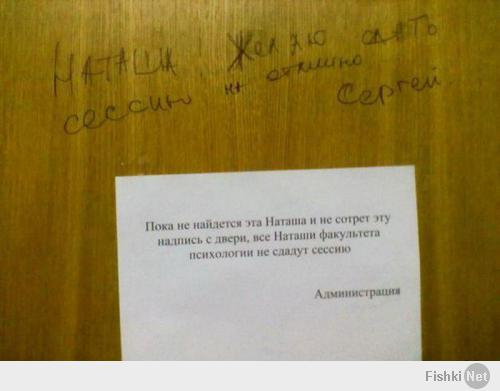 Наташа Желаю сдать
сессию на отлично
Сергей.
Пока не найдется эта Наташа и не сотрет эту
надпись с двери, все Наташи факультета
психологии не сдадут сессию
Администрация
Fishki Net